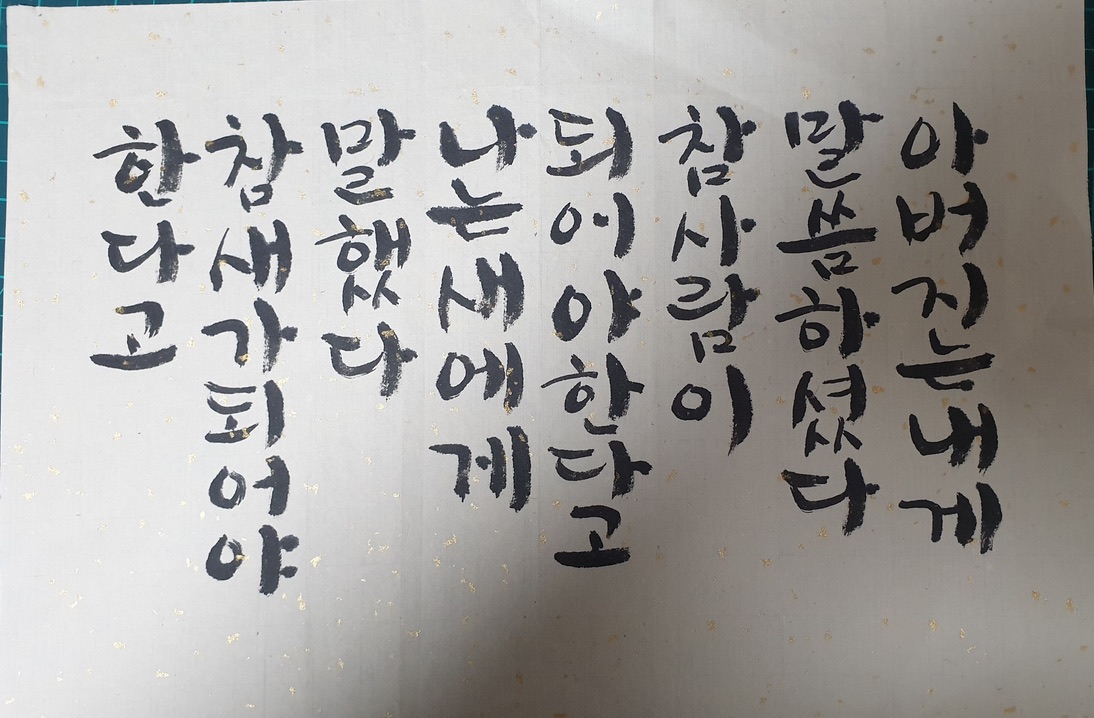 아버지는내게
말씀하셨다
참사람이
되어야한다고
나는새에게
말했다
참새가되어야
한다고